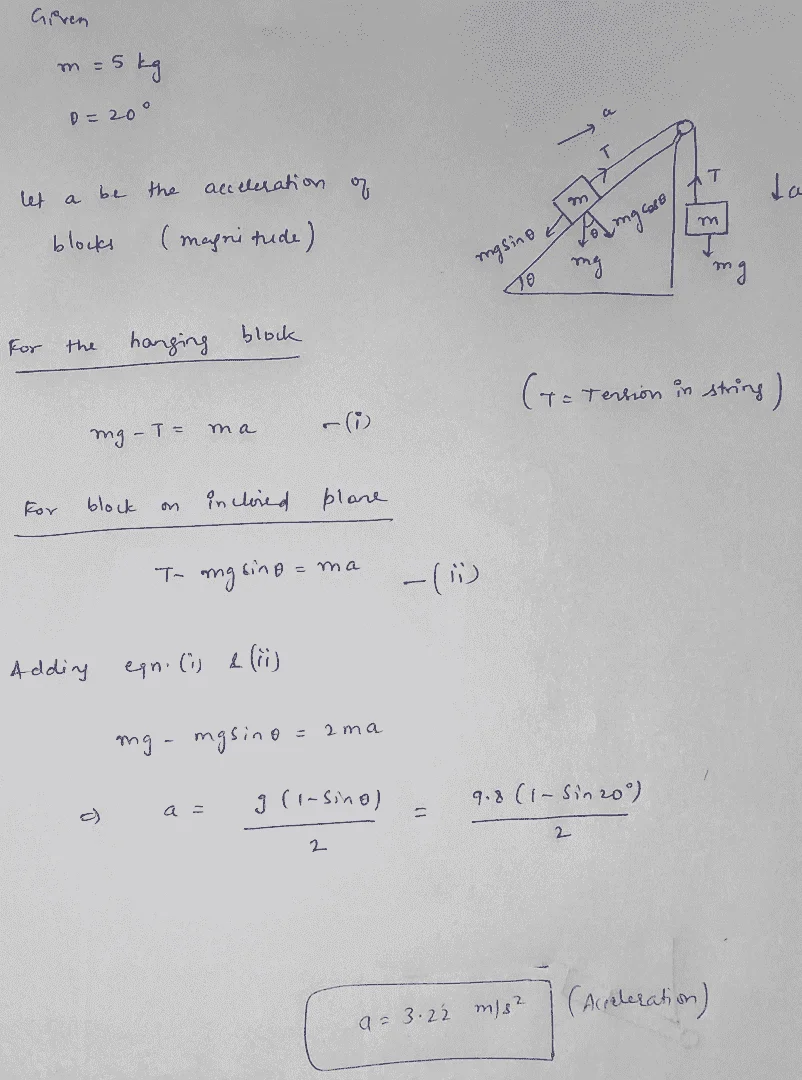 Given
m = 5 kg
θ = 20°
let a be the acceleration of
blocks (magnitude)
a
T
m
mg sinθ
θ
mg cosθ
mg
θ
T
m
mg
↓a
For the hanging block
(T = Tension in string)
mg - T = ma - (i)
For block on inclined plane
T - mg sinθ = ma - (ii)
Adding eqn. (i) & (ii)
mg - mg sinθ = 2ma
⇒ a = g(1 - sinθ) / 2 = 9.8(1 - sin 20°) / 2
a = 3.22 m/s² (Acceleration)